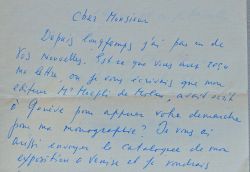 Cher Monsieur
Depuis longtemps j'ai pas eu de
vos nouvelles. Est ce que vous avez reçu
ma lettre, où je vous écrivais que mon
éditeur Mr avait écrit
à Genève pour appuyer votre demarche
pour ma monographie? Je vous ai
aussi envoyer le catalogue de mon
exposition a Venise et je voudrais